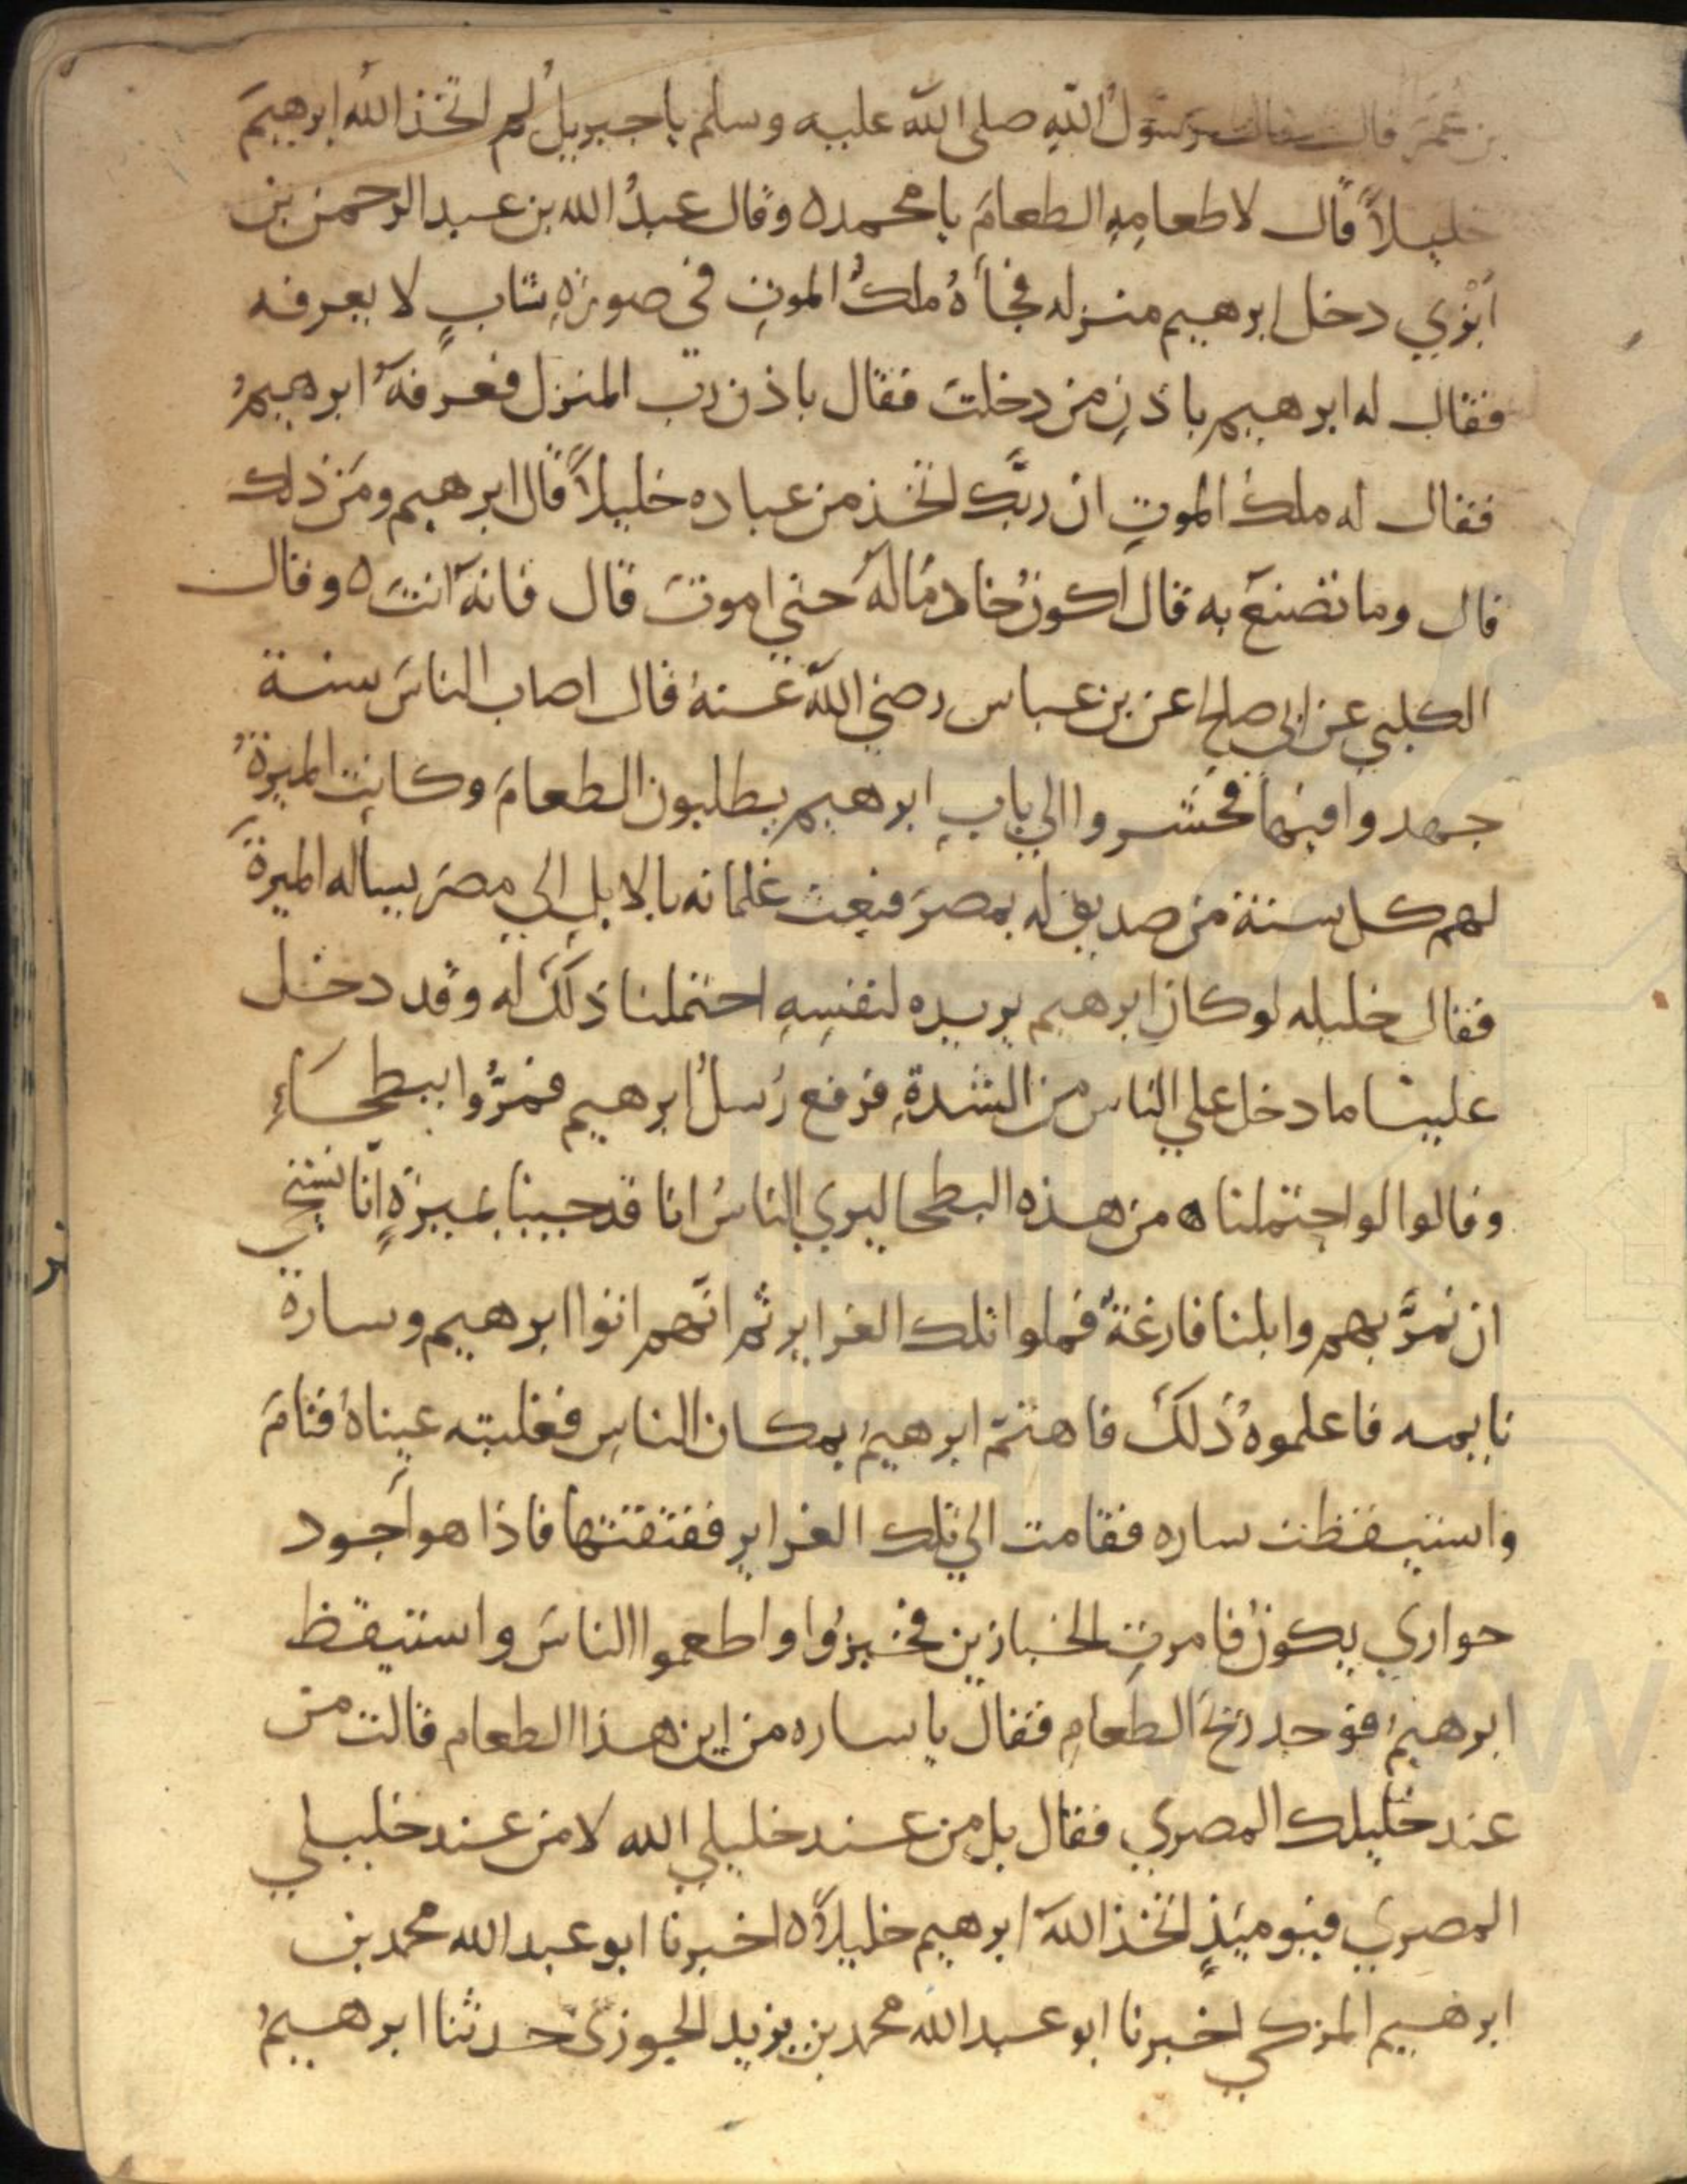 بن عُمَرَ قال قال رسَولُ اللّهِ صلى اللّه عليه وسلم يا جبريلُ لِم اتخذ اللّهُ ابرهيمَ
خليلاً قال لاطعامِهِ الطعامَ يا محمد ه وقال عبدُ الله بن عبد الرحمن بن
اَبْزي دخل ابرهيم منزله فجأهُ ملكُ الموتِ في صورةِ شابٍ لا يعرفه
فقال له ابرهيم باذنِ من دخلتَ فقال باذن ربّ المنزل فعرفهَُ ابرهيمُ
فقال له ملكُ الموتِ ان ربَّك اتخذ من عباده خليلاً قال ابرهيم ومَن ذلك
قال وما تصنعَ به قال اَكونُ خادمًا لهُ حتي اموتَ قال فانهَ انتَ ه وقال
الكلبي عن ابي صالح عن بن عباس رضي اللّه عنهُ قال اصاب الناسَ سنة
جهدوا فيها فحشروا الي بابِ ابرهيم يطلبون الطعامَ وكانت الميرةُ
لهم كل سنة من صديقٍ له بمصرَ فبعث غلمانه بالابلِ الي مصرَ يسأله الميرةَ
فقال خليله لو كان ابرهيم يريده لنفسِهِ احتملنا ذلكَ له وقد دخل
علينا ما دخل علي الناس من الشدةِ فرفع رُسلُ ابرهيم فمرُّوا ببطحَاءِ
وقالوا لو احتملنا من هذه البطحا ليري الناسُ انا قد جيبنا بميرةٍ انّا نستحي
ان نمرَّ بهم وابلنا فارغةٌ فملوا تلك الغراير ثم انَّهم اتوا ابرهيم وسارة
نايمه فاعلموهُ ذلكَ فاهتمّ ابرهيمُ بمكان الناسِ فغلبته عيناهُ فنامَ
واستيقظت ساره فقامت الي تلك الغراير ففتقتها فاذا هو اَجود
حواري يكونُ فامرتِ الخبازين فخبزُوا واطعموا الناسَ واستيقظ
ابرهيمُ فوجد ريحَ الطعامِ فقال يا ساره من اين هذا الطعام قالت من
عند خليلك المصري فقال بل من عند خليلي الله لا من عند خليلي
المصري فيوميَذٍ اتخذ اللّهَ ابرهيم خليلاً ه اخبرنا ابو عبد الله محمد بن
ابرهيم المزكي اخبرنا ابو عبد الله محمد بن يزيد الجوزيّ حدثنا ابرهيمُ